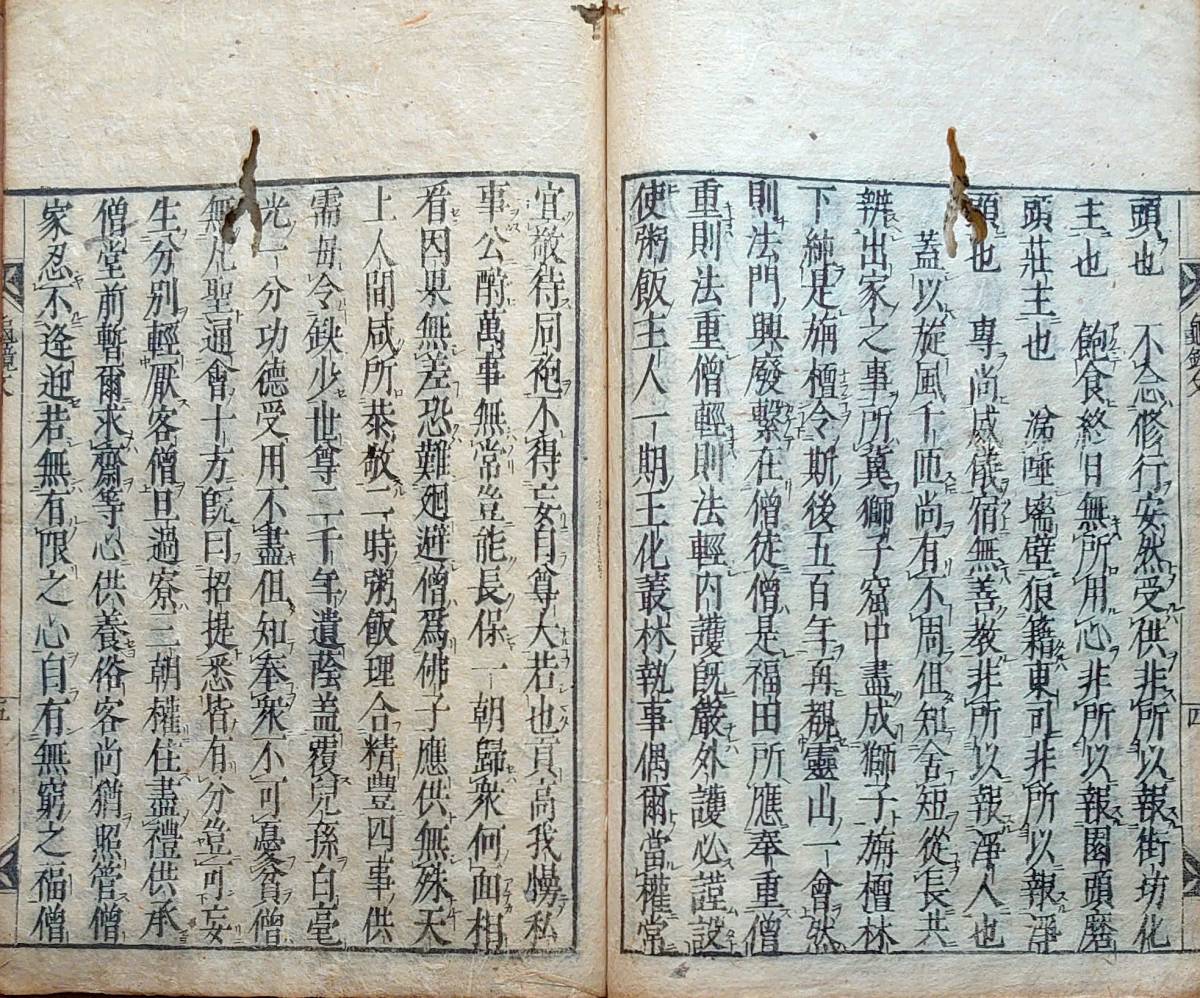 頭也　不念修行安然受供非所以報街坊化
主也　飽食終日無所用心非所以報園頭磨
頭莊主也　涕唾墻壁狼籍東司非所以報淨
頭也　專尚威儀宿無善教非所以報淨人也
蓋以旋風千匝尚有不周但知舍短從長共
辨出家之事所冀獅子窟中盡成獅子旃檀林
下純是旃檀令斯後五百年再覩靈山一會然
則法門興廢繫在僧徒僧是福田所應奉重僧
重則法重僧輕則法輕內護既嚴外護必謹設
使粥飯主人一期王化叢林執事偶爾當權常
宜敬待同袍不得妄自尊大若也貢高我慢私
事公酬萬事無常豈能長保一朝歸衆何面相
看因果無差恐難廻避僧爲佛子應供無殊天
上人間咸所恭敬二時粥飯理合精豐四事供
需毋令缺少世尊二千年遺蔭盖覆兒孫白毫
光一分功德受用不盡但知奉衆不可憂貧僧
無凡聖通會十方既曰招提悉皆有分豈可妄
生分別輕厭客僧旦過寮三朝權住盡禮供承
僧堂前暫爾求齋等心供養俗客尚猶照管僧
家忍不逢迎若無有限之心自有無窮之福僧
四
五